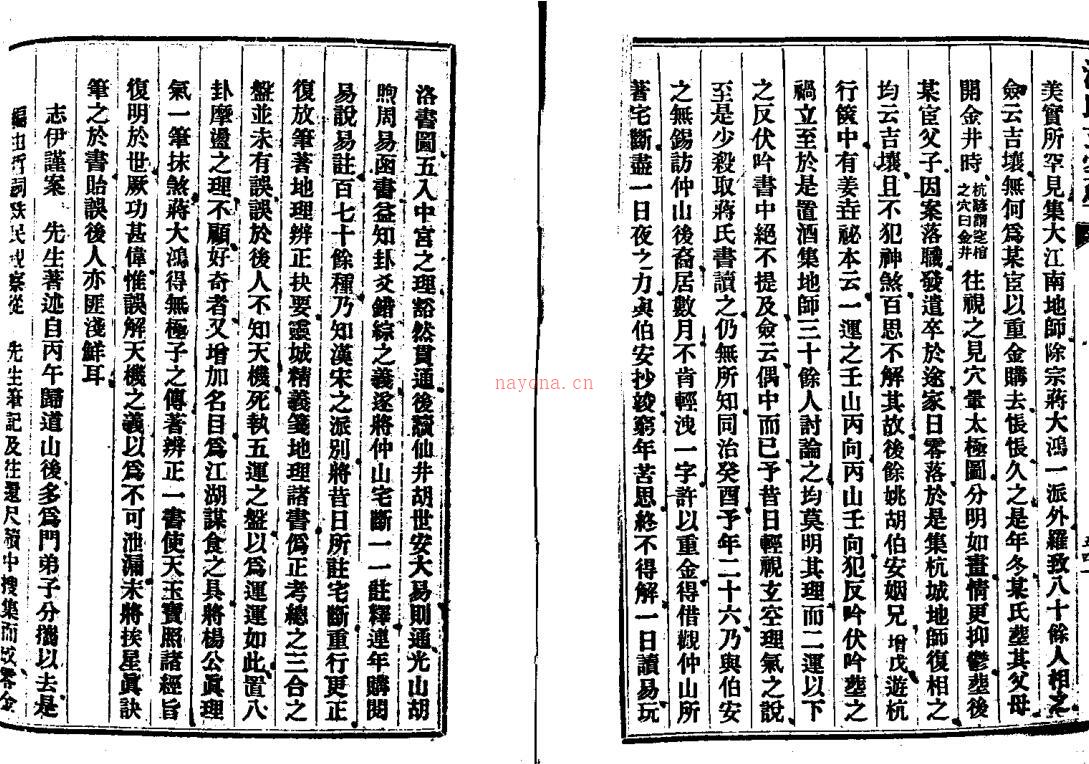 美實所罕見集大江南地師除宗蔣大鴻一派外羅致八十餘人相之
僉云吉壤無何爲某宦以重金購去悵悵久之是年冬某氏塟其父母
開金井時杭諺謂空棺之穴曰金井往視之見穴暈太極圖分明如畫情更抑鬱塟後
某宦父子因案落職發遣卒於途家日零落於是集杭城地師復相之
均云吉壤且不犯神煞百思不解其故後餘姚胡伯安姻兄增戊遊杭
行篋中有姜垚祕本云一運之壬山丙向丙山壬向犯反吟伏吟塟之
禍立至於是置酒集地師三十餘人討論之均莫明其理而二運以下
之反伏吟書中絕不提及僉云偶中而已予昔日輕視玄空理氣之說
至是少殺取蔣氏書讀之仍無所知同治癸酉予年二十六乃與伯安
之無錫訪仲山後裔居數月不肯輕洩一字許以重金得借觀仲山所
著宅斷盡一日夜之力與伯安抄竣窮年苦思終不得解一日讀易玩
洛書圖五入中宮之理豁然貫通後讀仙井胡世安大易則通光山胡
煦周易函書益知卦爻錯綜之義遂將仲山宅斷一一註釋連年購閱
易說易註百七十餘種乃知漢宋之派別將昔日所註宅斷重行更正
復放筆著地理辨正抉要靈城精義箋地理諸書僞正考總之三合之
盤並未有誤誤於後人不知天機死執五運之盤以爲運運如此置八
卦摩盪之理不顧好奇者又增加名目爲江湖謀食之具將楊公眞理
氣一筆抹煞蔣大鴻得無極子之傳著辨正一書使天玉寶照諸經旨
復明於世厥功甚偉惟誤解天機之義以爲不可泄漏未將挨星眞訣
筆之於書貽誤後人亦匪淺鮮耳
志伊謹案 先生著述自丙午歸道山後多爲門弟子分攜以去是
先生筆記及往還尺牘中搜集而
nayona.cn